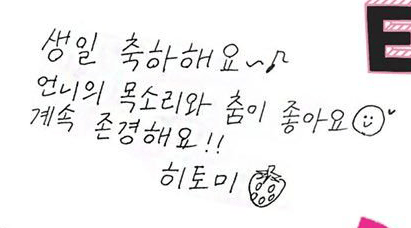 생일 축하해요~♪
언니의 목소리와 춤이 좋아요
계속 존경해요!!
히토미
E